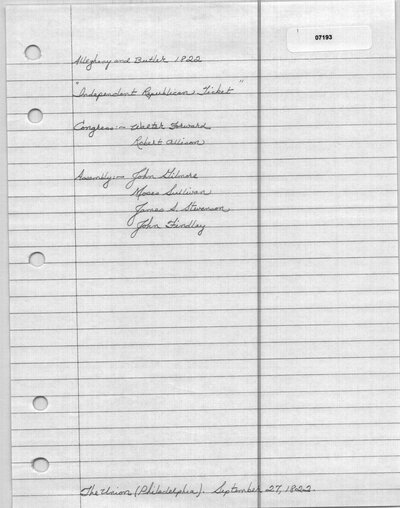 07193
Allegheny and Butler 1822
"Independent Republican Ticket"
Congress:- Walter Forward
Robert Allison
Assembly:- John Gilmore
Moses Sullivan
James S. Stevenson
John Findlay
The Union (Philadelphia). September 27, 1822.